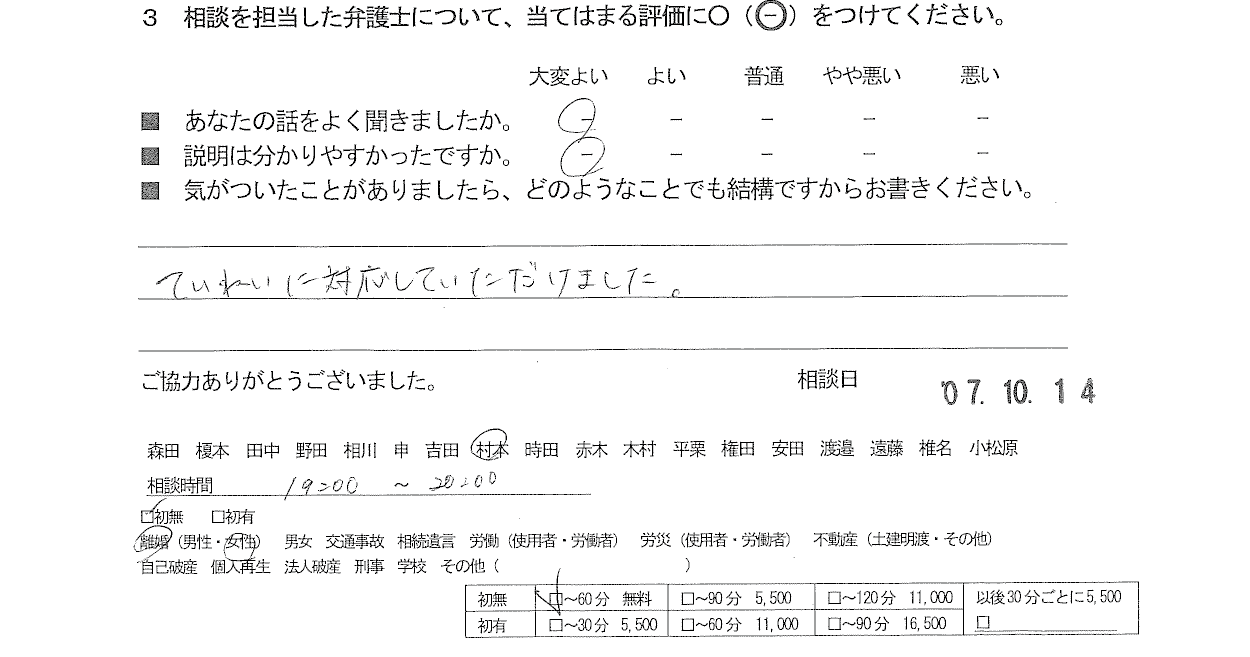 3 相談を担当した弁護士について、当てはまる評価に○（㊀）をつけてください。
大変よい よい 普通 やや悪い 悪い
■ あなたの話をよく聞きましたか。 － － － － －
■ 説明は分かりやすかったですか。 － － － － －
■ 気がついたことがありましたら、どのようなことでも結構ですからお書きください。
ていねいに対応していただけました。
ご協力ありがとうございました。 相談日 '07.10.14
森田 榎本 田中 野田 相川 申 吉田 村本 時田 赤木 木村 平栗 権田 安田 渡邉 遠藤 椎名 小松原
相談時間 19:00 ～ 20:00
□初無 □初有
離婚（男性・女性） 男女 交通事故 相続遺言 労働（使用者・労働者） 労災（使用者・労働者） 不動産（土建明渡・その他）
自己破産 個人再生 法人破産 刑事 学校 その他（ ）
初無 □～60分 無料 □～90分 5,500 □～120分 11,000 以後30分ごとに5,500
初有 □～30分 5,500 □～60分 11,000 □～90分 16,500 □